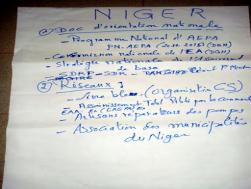 NIGER
① Doc d'orientation nationale
- Programme National d'AEPA
PN-AEPA
- Commission nationale de l'EA (CNEA)
- Stratégie nationale de l'Assainissement
de base
SDRP-SDR-
② Réseaux :
- Livre bleu (organisation CS)
- Assainissement Total Piloté par la Communauté
- Artisans réparateurs des pompes
- Association des municipalités
du Niger